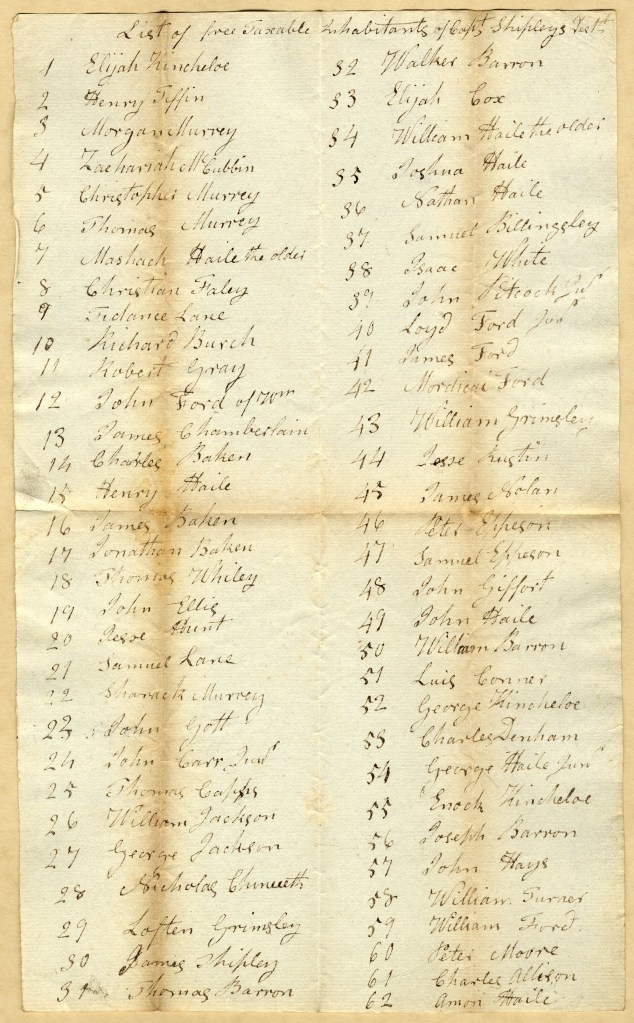 List of free Taxable Inhabitants of Capt Shipleys Dist
1 Elijah Kincheloe
2 Henry Tiffin
3 Morgan Murrey
4 Zachariah McCubbin
5 Christopher Murrey
6 Thomas Murrey
7 Mashach Haile the older
8 Christian Faley
9 Tidance Lane
10 Richard Burch
11 Robert Gray
12 John Ford of Wm
13 James Chamberlain
14 Charles Baken
15 Henry Haile
16 James Baken
17 Jonathan Baken
18 Thomas Whiley
19 John Ellis
20 Jesse Hunt
21 Samuel Lane
22 Sharack Murrey
23 John Gott
24 John Carr Junr
25 Thomas Capps
26 William Jackson
27 George Jackson
28 Nicholas
29 Loften Grimsley
30 James Shipley
31 Thomas Barron
32 Walker Barron
33 Elijah Cox
34 William Haile the older
35 Joshua Haile
36 Nathan Haile
37 Samuel Billingsley
38 Isaac White
39 John Pitcock Junr
40 Loyd Ford Junr
41 James Ford
42 Mordicai Ford
43 William Grimsley
44 Jesse Rustin
45 James Nolan
46 Peter Eppeson
47 Samuel Eppeson
48 John Giffort
49 John Haile
50 William Barron
51 Luis Conner
52 George Kincheloe
53 Charles Denham
54 George Haile Junr
55 Enock Kincheloe
56 Joseph Barron
57 John Hays
58 William Turner
59 William Ford
60 Peter Moore
61 Charles Allison
62 Amon Haile